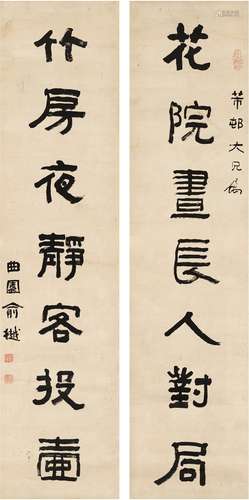 花院晝長人對局
茀邨大兄屬
竹房夜靜客投壺
曲園俞樾